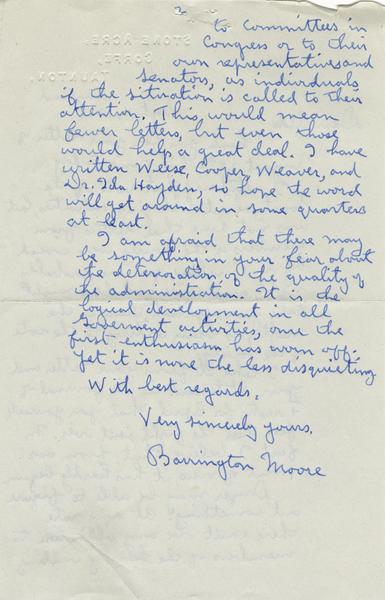 3
to Committees in
Congress or to their
own representatives and
senators, as individuals
if the situation is called to their
attention. This would mean
fewer letters, but even those
would help a great deal. I have
written Weese, Cooper, Weaver, and
Dr. Ida Hayden, so hope the word
will get around in some quarters
at least.
I am afraid that there may
be something in your fear about
the deterioration of the quality of
the administration. It is the
logical development in all
Government activities, once the
first enthusiasm has worn off.
Yet it is none the less disquieting.
With best regards,
Very sincerely yours,
Barrington Moore
STONE ACRE,
CORFE,
TAUNTON.